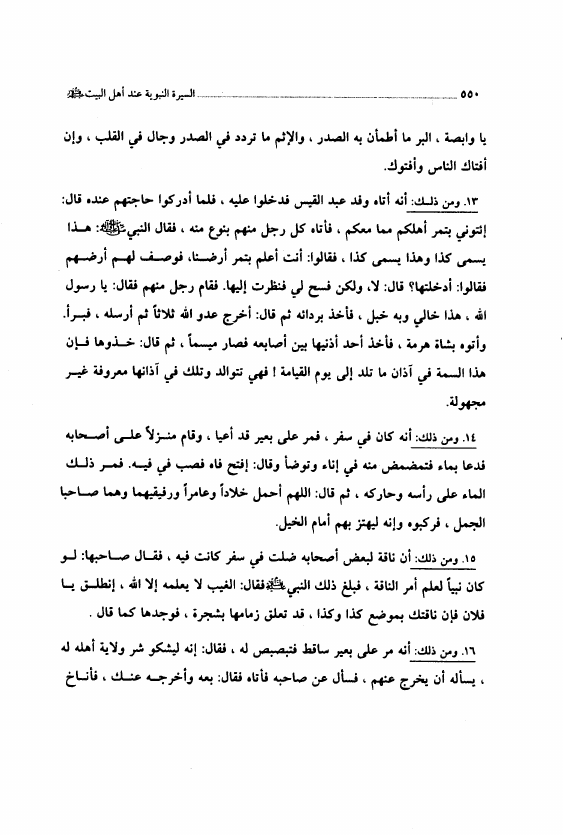 ٥٥٠ ........ السيرة النبوية عند أهل البيت ﷺ
يا وابصة ، البر ما أطمأن به الصدر ، والإثم ما تردد في الصدر وجال في القلب ، وإن
أفتاك الناس وأفتوك.
١٣. ومن ذلـك: أنه أتاه وفد عبد القيس فدخلوا عليه ، فلما أدركوا حاجتهم عنده قال:
إئتوني بتمر أهلكم مما معكم ، فأتاه كل رجل منهم بنوع منه ، فقال النبي ﷺ: هـذا
يسمى كذا وهذا يسمى كذا ، فقالوا: أنت أعلم بتمر أرضـنا، فوصـف لهـم أرضـهم
فقالوا: أدخلتها؟ قال: لا، ولكن فسح لي فنظرت إليها. فقام رجل منهم فقال: يا رسول
الله ، هذا خالي وبه خبل ، فأخذ بردائه ثم قال: أخرج عدو الله ثلاثاً ثم أرسله ، فبـرأ.
وأتوه بشاة هرمة ، فأخذ أحد أذنيها بين أصابعه فصار ميسمـاً ، ثم قال: خـذوها فـإن
هذا السمة في آذان ما تلد إلى يوم القيامة ! فهي تتوالد وتلك في آذانها معروفة غيـر
مجهولة.
١٤. ومن ذلك: أنه كان في سفر ، فمر على بعير قد أعيا ، وقام منـزلاً علـى أصـحابه
فدعا بماء فتمضمض منه في إناء وتوضأ وقال: إفتح فاه فصب في فيـه. فمـر ذلـك
الماء على رأسه وحاركه ، ثم قال: اللهم أحمل خلاداً وعامراً ورفيقيهما وهما صـاحبا
الجمل ، فركبوه وإنه ليهتز بهم أمام الخيل.
١٥. ومن ذلك: أن ناقة لبعض أصحابه ضلت في سفر كانت فيه ، فقـال صـاحبها: لـو
كان نبياً لعلم أمر الناقة ، فبلغ ذلك النبي ﷺ فقال: الغيب لا يعلمه إلا الله ، إنطلـق يـا
فلان فإن ناقتك بموضع كذا وكذا ، قد تعلق زمامها بشجرة ، فوجدها كما قال .
١٦. ومن ذلك: أنه مر على بعير ساقط فتبصبص له ، فقال: إنه ليشكو شر ولاية أهله له
، يسأله أن يخرج عنهم ، فسأل عن صاحبه فأتاه فقال: بعه وأخرجـه عنـك ، فأنـاخ